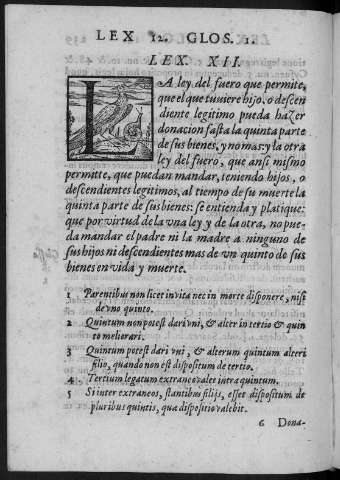 LEX 12. GLOS. 1.
LEX. XII.
LA ley del fuero que permite,
que el que tuuiere hijo, o descen
diente legitimo pueda hazer
donacion fasta la quinta parte
de sus bienes, y no mas: y la otra
ley del fuero, que ansi mismo
permitte, que puedan mandar, teniendo hijos, o
descendientes legitimos, al tiempo de su muerte la
quinta parte de sus bienes: se entienda y platique:
que por virtud de la vna ley y de la otra, no pue-
da mandar el padre ni la madre a ninguno de
sus hijos ni descendientes mas de vn quinto de sus
bienes en vida y muerte.
1 Parentibus non licet in vita nec in morte disponere, nisi
de vno quinto.
2 Quintum non potest dari vni, & alter in tertio & quin
to meliorari.
3 Quintum potest dari vni, & alterum quintum alteri
filio, quando non est dispositum de tertio.
4 Tertium legatum extraneo valet intra quintum.
5 Si inter extraneos, stantibus filijs, esset dispositum de
pluribus quintis, qua dispositio valebit.
6 Dona-